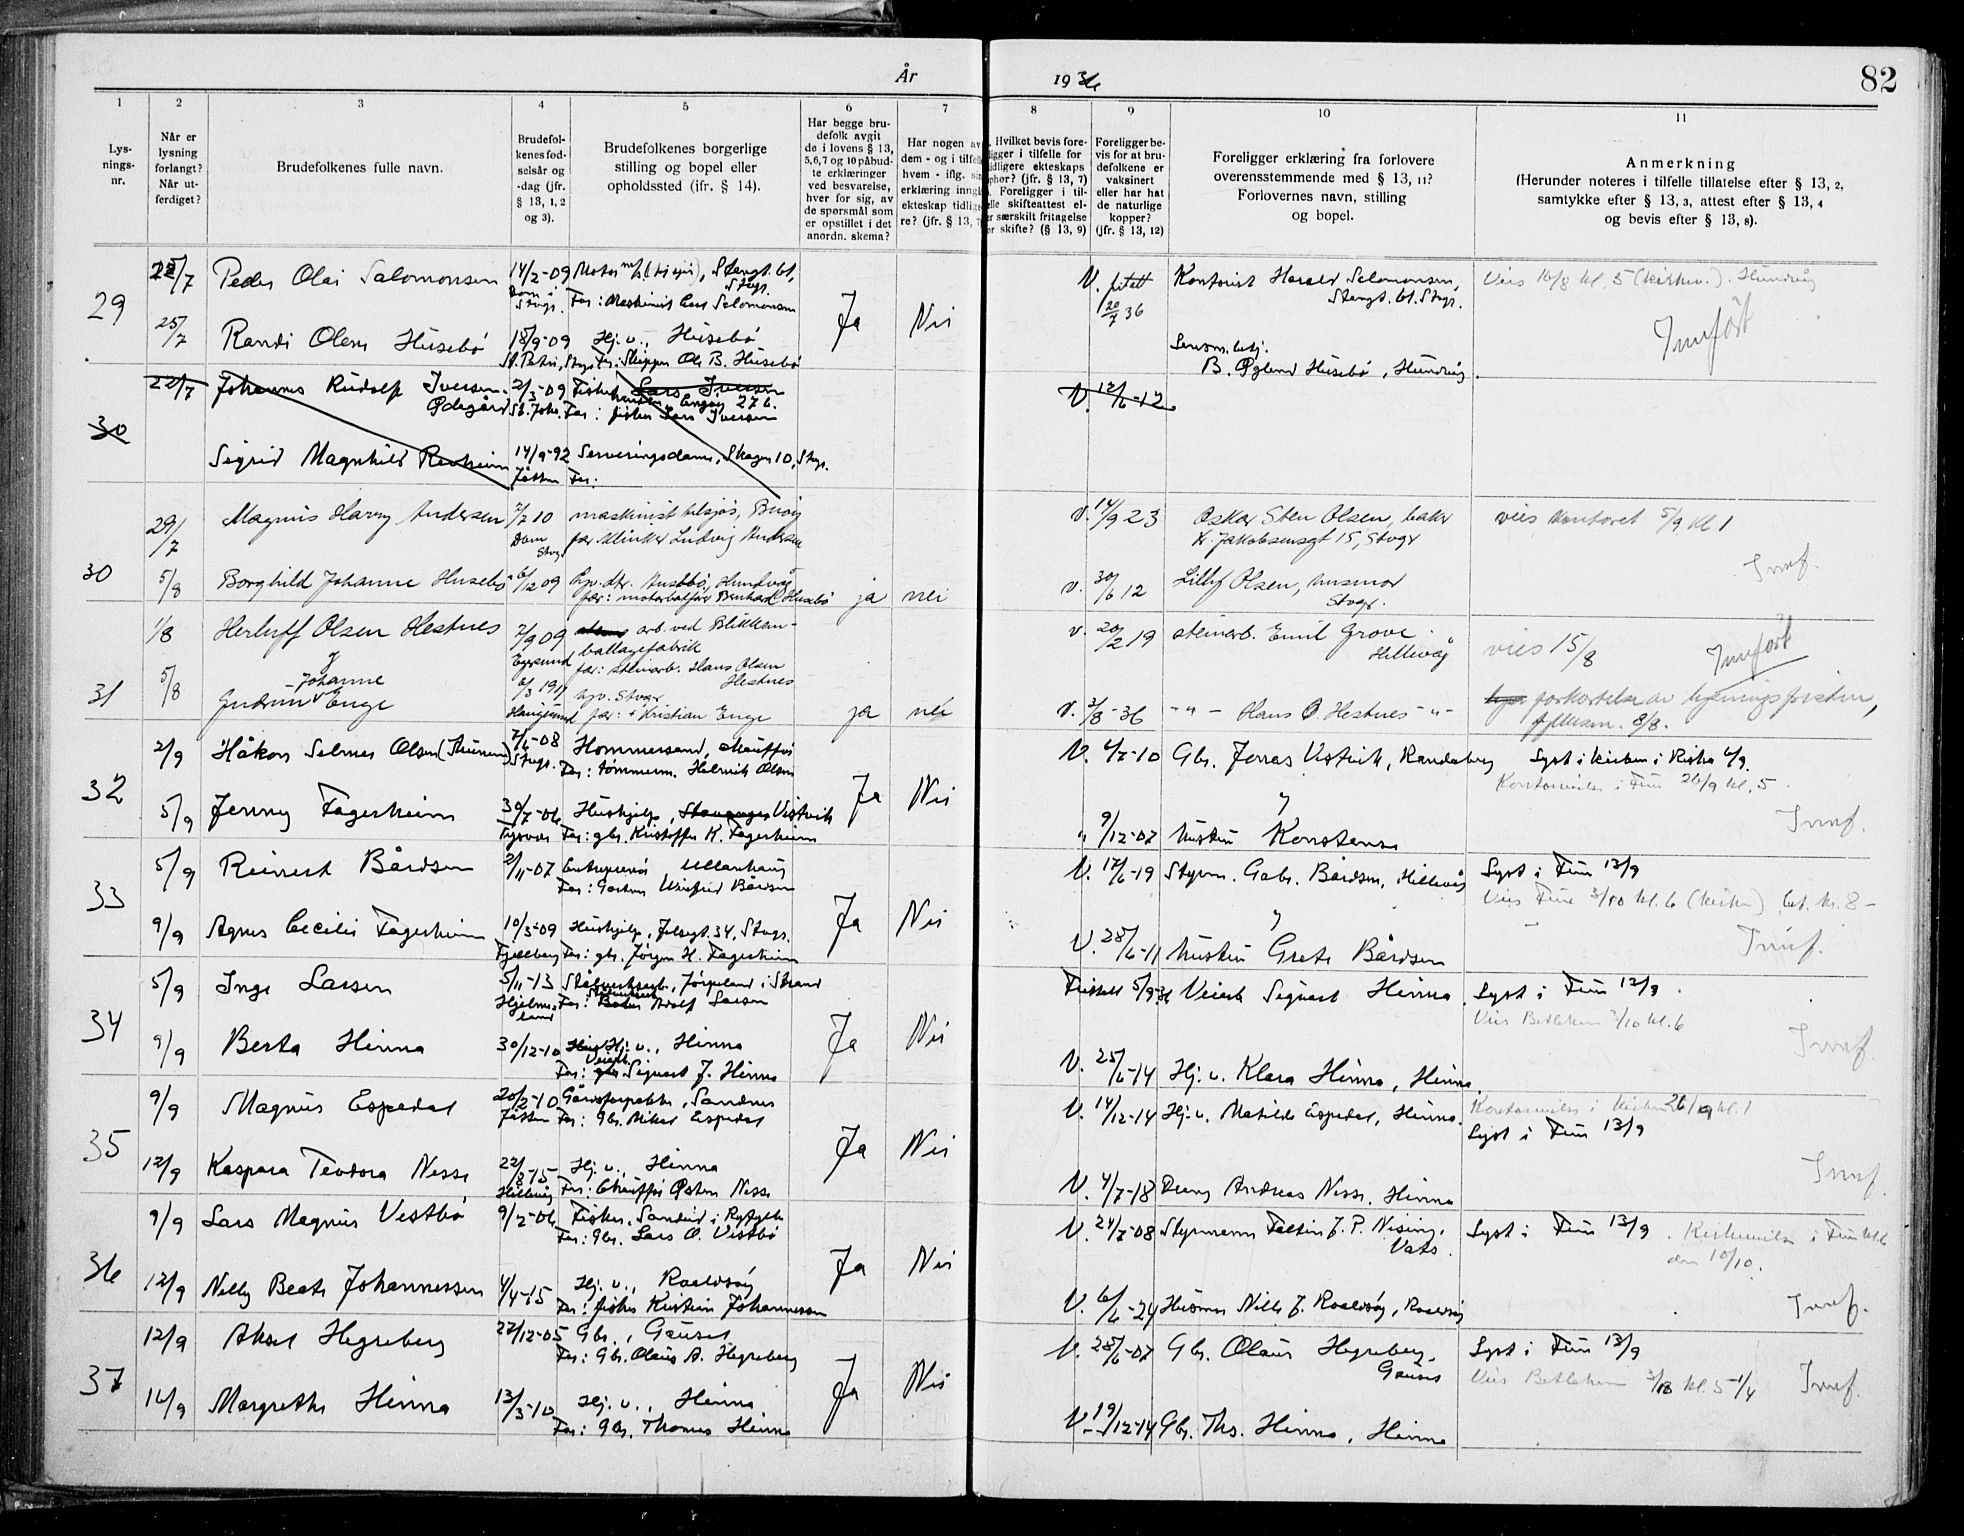 År 1936
82
1 2 3 4 5 6 7 8 9 10 11
Lys-
nings-
nr.
Når er
lysning
forlangt?
Når ut-
ferdiget?
Brudefolkenes fulle navn.
Brudefol-
kenes fød-
selsår og
-dag (jfr.
§ 13, 1, 2
og 3).
Brudefolkenes borgerlige
stilling og bopel eller
opholdssted (ifr. § 14).
Har begge bru-
defolk avgit
de i lovens § 13,
5,6,7 og 10 påbud-
te erklæringer
ved besvarelse,
hver for sig, av
de spørsmål som
er opstillet i det
anordn. skema?
Har nogen av
dem - og i tilfelle
hvem - iflg.
erklæring inngått
ekteskap tidlige-
re? (jfr. § 13, 7
Hvilket bevis fore-
ligger i tilfelle for
tidligere ekteskaps
ophør? (jfr. § 13, 7)
Foreligger i til-
felle skifteattest el-
ler særskilt fritagelse
for skifte? (§ 13, 9)
Foreligger be-
vis for at bru-
defolkene er
vaksinert
eller har hat
de naturlige
kopper?
(jfr. § 13, 12)
Foreligger erklæring fra forlovere
overensstemmende med § 13, 11?
Forlovernes navn, stilling
og bopel.
Anmerkning
(Herunder noteres i tilfelle tillatelse efter § 13, 2,
samtykke efter § 13, 3, attest efter § 13, 4
og bevis efter § 13, 8).
29
22/7 Peder Olai Salomonsen 14/2-09
Far: Maskinist Lars Salomonsen
Ja Nei
V. 20/7 36
Kontorist Harald Salomonsen,
Viet 16/8 kl. 5 (kirken). Hundvåg
Innført
25/7 Randi Olena Husebø 18/9-09 Hj. v., Husebø
St. Petri, Stvgr. Far: Skipper Ole B. Husebø
B. Øglend Husebø, Hundvåg.
30
22/7 Johannes Rudolf Iversen 2/3-09 Fisker
Ødegård St. Joh. Far: fisker Lars Iversen
V. 12/6-12
Sigrid Magnhild 14/9-92 Serveringsdame, Skagen 10, Stvgr.
Jåtten Far:
30
29/7 Magnus Harry Andersen 7/7 10 maskinist tilsjøs, Buøy
Dom Stvgr far klinker Ludvig Andersen
v. 14/9 23 Oskar Sten Olsen, baker
Kr. Jakobsensgt 15, Stvgr
viet kontoret 5/9 kl 1
Innf.
5/8 Borghild Johanne Husebø 6/12 09 hjv. dtr. Husebø, Hundvåg
far: motorbåtfører Bernhard Husebø
ja nei
v. 30/6 12 Lilly Olsen, husmor
Stvgr.
31
1/8 Herluff Olsen Hestnes 7/9 09 arb. ved Blikkem-
ballagefabrik
Egersund far: steinarb. Hans Olsen
Hestnes
v. 20/2 19 steinarb. Emil Grove
Hillevåg
viet 15/8 Innført
5/8 Gudrun Johanne Enge 6/3 1911 hjv. Stvgr
Haugesund far: Kristian Enge
ja nei
v. 3/8-36 -"- Hans O Hestnes -"-
forkortelse av lysningsfristen,
8/8.
32
2/9 Håkon Selmer Olsen 7/6-08 Hommersand, chauffør
Stvgr. Far: tømmerm. Helmik Olsen
Ja Nei
V. 4/7-10 Gbr. Jonas Vistvik, Randaberg
Lyst i kirken 6/9.
26/9 kl. 5
Innf.
5/9 Jenny Fagerheim 30/7-06 Hushjelp, Stavanger Vistvik
Tysvær Far: gbr. Kristoffer K. Fagerheim
" 9/12-07 hustru Konstanse
33
5/9 Reinert Bårdsen 2/11-07 Entreprenør Ullandhaug
Far: Gartner Bårdsen
Ja Nei
V. 17/6-19 Styrm. Gabr. Bårdsen, Hillevåg
Lyst i Frue 13/9
Viet Frue 3/10 kl. 6 (kirken) bet. kr. 8-
Innf.
9/9 Agnes Cecilie Fagerheim 10/3-09 Hushjelp, 34, Stvgr.
Far: gbr. Jørgen H. Fagerheim
V. 28/6-11 hustru Grete Bårdsen
34
5/9 Inge Larsen 5/11-13 Stålverksarb., Jørpeland i Strand
Hjelme-
land Far: Adolf Larsen
Ja Nei
5/9-36 Veiarb. Sigvart Hinna
Lyst i Frue 13/9
Viet Betlehem 3/10 kl. 6
Innf.
9/9 Berta Hinna 30/12-10 Hj. v., Hinna
Far: Veiarb. Sigvart J. Hinna
V. 25/6-14 Hj. v. Klara Hinna, Hinna
35
9/9 Magnus Espedal 20/2-10 Gårdsforpakter, Sandnes
Jåtten Far: Gbr. Mikal Espedal
Ja Nei
V. 14/12-14 Hj. v. Matilde Espedal, Hinna.
26/9 kl. 1
Lyst i Frue 13/9
Innf.
12/9 Kaspara Teodora Nesse 22/8-15 Hj. v., Hinna
Hillevåg Far: Chauffør Østen Nesse
V. 4/7-18 Andreas Nesse, Hinna
36
9/9 Lars Magnus Vestbø 9/2-06 Fisker, Sandeid i Ryfylke
Far: Gbr. Lars O. Vestbø
Ja Nei
V. 24/7-08 Styrmann J. P. Nising,
Vats.
Lyst i Frue 13/9. Kirkevielse i Frue kl. 6
den 10/10.
Innf.
12/9 Nelly Beate Johannessen 4/4-15 Hj. v., Roaldsøy
Far: fisker Kristian Johannessen
V. 6/6-24 Husmor Nille J. Roaldsøy, Roaldsøy
37
12/9 Aksel Hegreberg 22/12-05 Gbr., Gausel
Far: Gbr. Olaus A. Hegreberg
Ja Nei
V. 28/6-07 Gbr. Olaus Hegreberg,
Gausel
Lyst i Frue 13/9
Viet Betlehem 3/10 kl. 5 1/4
Innf.
16/9 Margrethe Hinna 13/3-10 Hj. v., Hinna
Far: Gbr. Thomas Hinna
V. 19/12-14 Gbr. Ths. Hinna, Hinna